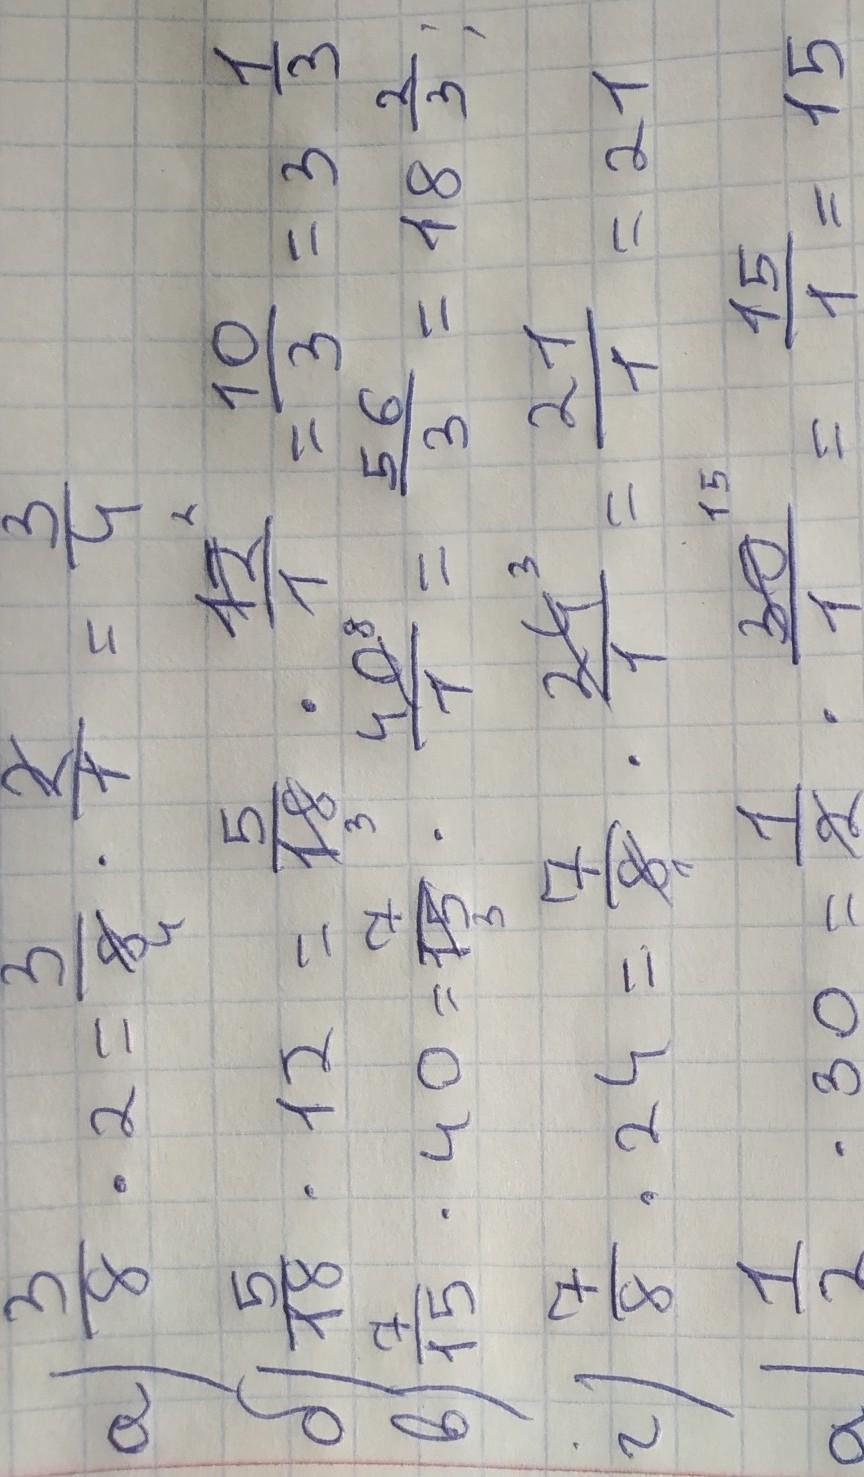 а) 3/8 · 2 = 3/8 4 · 2/1 = 3/4
б) 5/18 · 12 = 5/18 3 · 12 2/1 = 10/3 = 3 1/3
в) 7/15 · 40 = 7/15 3 · 40 8/1 = 56/3 = 18 2/3;
г) 7/8 · 24 = 7/8 1 · 24 3/1 = 21/1 = 21
а) 1/2 · 30 = 1/2 · 30 15/1 = 15/1 = 15